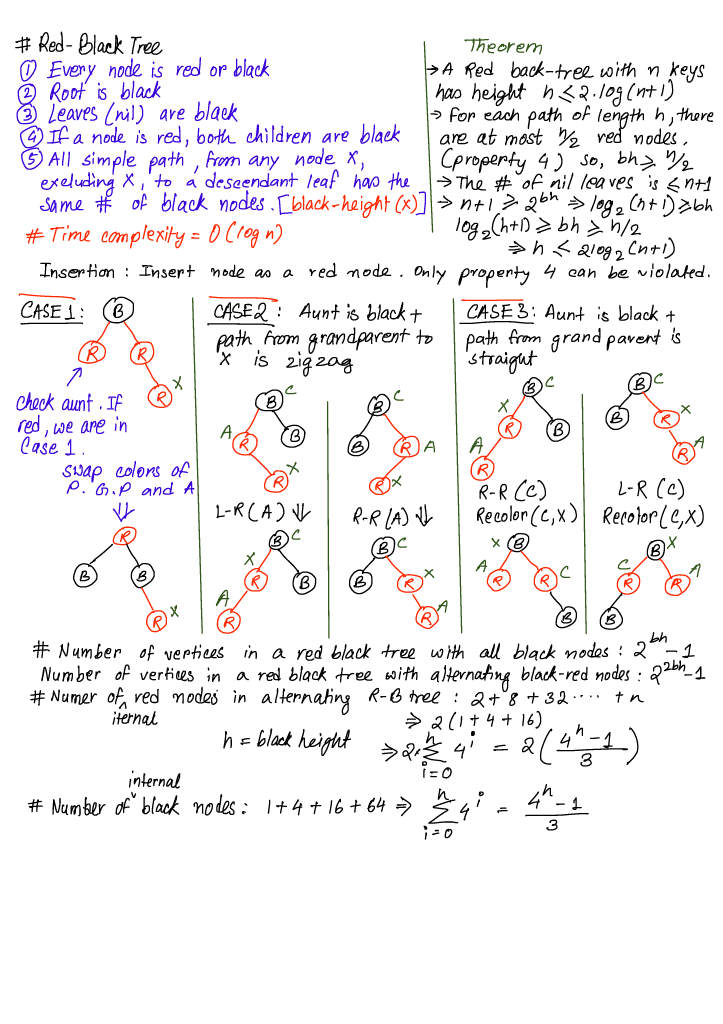 # Red-Black Tree
① Every node is red or black
② Root is black
③ Leaves (nil) are black
④ If a node is red, both children are black
⑤ All simple path, from any node X,
excluding X, to a descendant leaf has the
same # of black nodes. [black-height(x)]
# Time complexity = O(log n)
Theorem
→ A Red back-tree with n keys
has height h ≤ 2.log(n+1)
→ For each path of length h, there
are at most h/2 red nodes.
(property 4) so, bh ≥ h/2
→ The # of nil leaves is ≤ n+1
→ n+1 ≥ 2^bh ⇒ log₂(n+1) ≥ bh
log₂(n+1) ≥ bh ≥ h/2
⇒ h ≤ 2log₂(n+1)
Insertion : Insert node as a red node. Only property 4 can be violated.
CASE 1:
B
R R
R X
check aunt. If
red, we are in
Case 1.
swap colors of
P. G.P and A
R
B B
R X
CASE 2 : Aunt is black +
path from grandparent to
X is zig zag
B C
A R B
R X
L-R(A)
B C
X R B
A R
B C
B R A
R X
R-R(A)
B C
B R X
R A
CASE 3: Aunt is black +
path from grand parent is
straight
B C
X R B
A R
R-R (C)
Recolor(C,X)
X B
A R R C
B
B C
B R X
R A
L-R (C)
Recolor(C,X)
B X
C R R A
B
# Number of vertices in a red black tree with all black nodes : 2^bh - 1
Number of vertices in a red black tree with alternating black-red nodes : 2^2bh - 1
# Numer of iternal red nodes in alternating R-B tree : 2 + 8 + 32 .... + n
⇒ 2(1 + 4 + 16)
h = black height ⇒ 2 * ∑_{i=0}^{h} 4^i = 2((4^h - 1)/3)
# Number of internal black nodes : 1 + 4 + 16 + 64 ⇒ ∑_{i=0}^{h} 4^i = (4^h - 1)/3